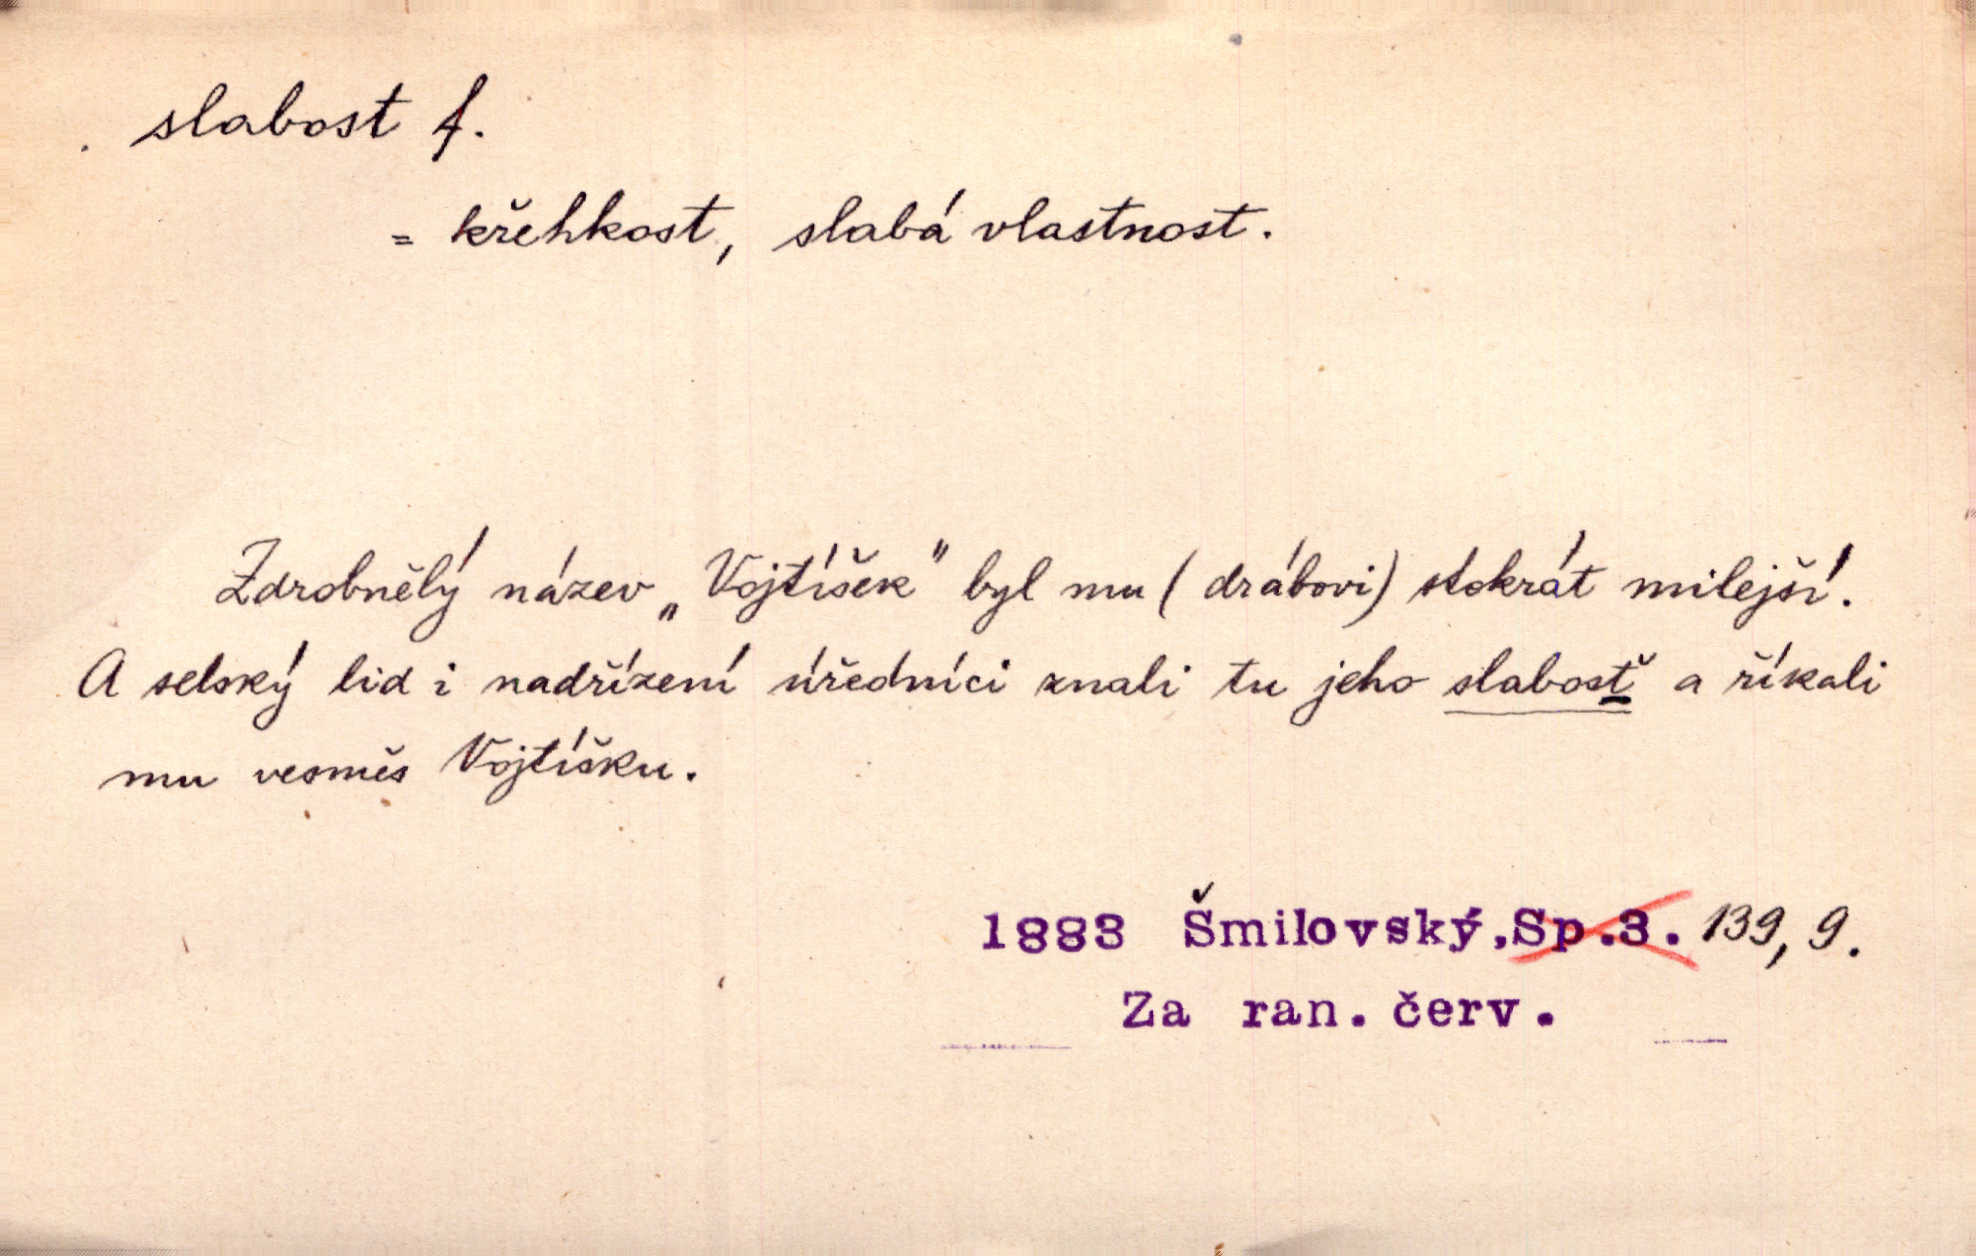 slabost f.
= křehkost, slabá vlastnost.
Zdrobnělý název „Vojtíšek" byl mu (drábovi) stokrát milejší.
A selský lid i nadřízení úředníci znali tu jeho slabosť a říkali
mu vesměs Vojtíšku.
1883 Šmilovský,Sp.3. 139, 9.
Za ran. červ.